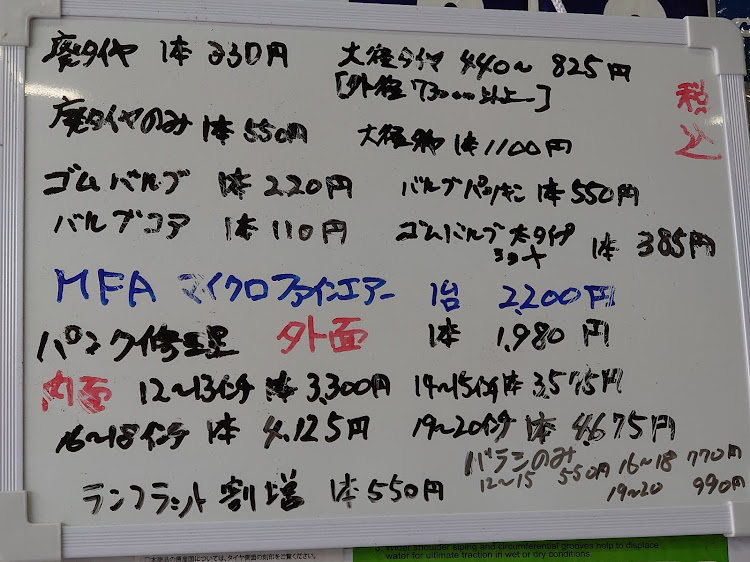 廃タイヤ 1本 330円 大径タイヤ 440〜825円
[外径 730mm以上〜]
税込
廃タイヤのみ 1本 550円 大径 1本 1100円
ゴムバルブ 1本 220円 バルブパッキン 1本 550円
バルブコア 1本 110円 ゴムバルブ 太タイプ 1本 385円
MFA マイクロファインエアー 1台 2,200円
パンク修理 外面 1本 1,980円
内面 12〜13インチ 1本 3,300円 14〜15インチ 1本 3,575円
16〜18インチ 1本 4,125円 19〜20インチ 1本 4,675円
バランのみ
12〜15 550円 16〜18 770円
19〜20 990円
ランフラット 割増 1本 550円
本製品の原産国については、タイヤ側面の刻印をご覧ください。
Water shoulder siping and circumferential grooves help to displace
water for ultimate traction in wet or dry conditions.